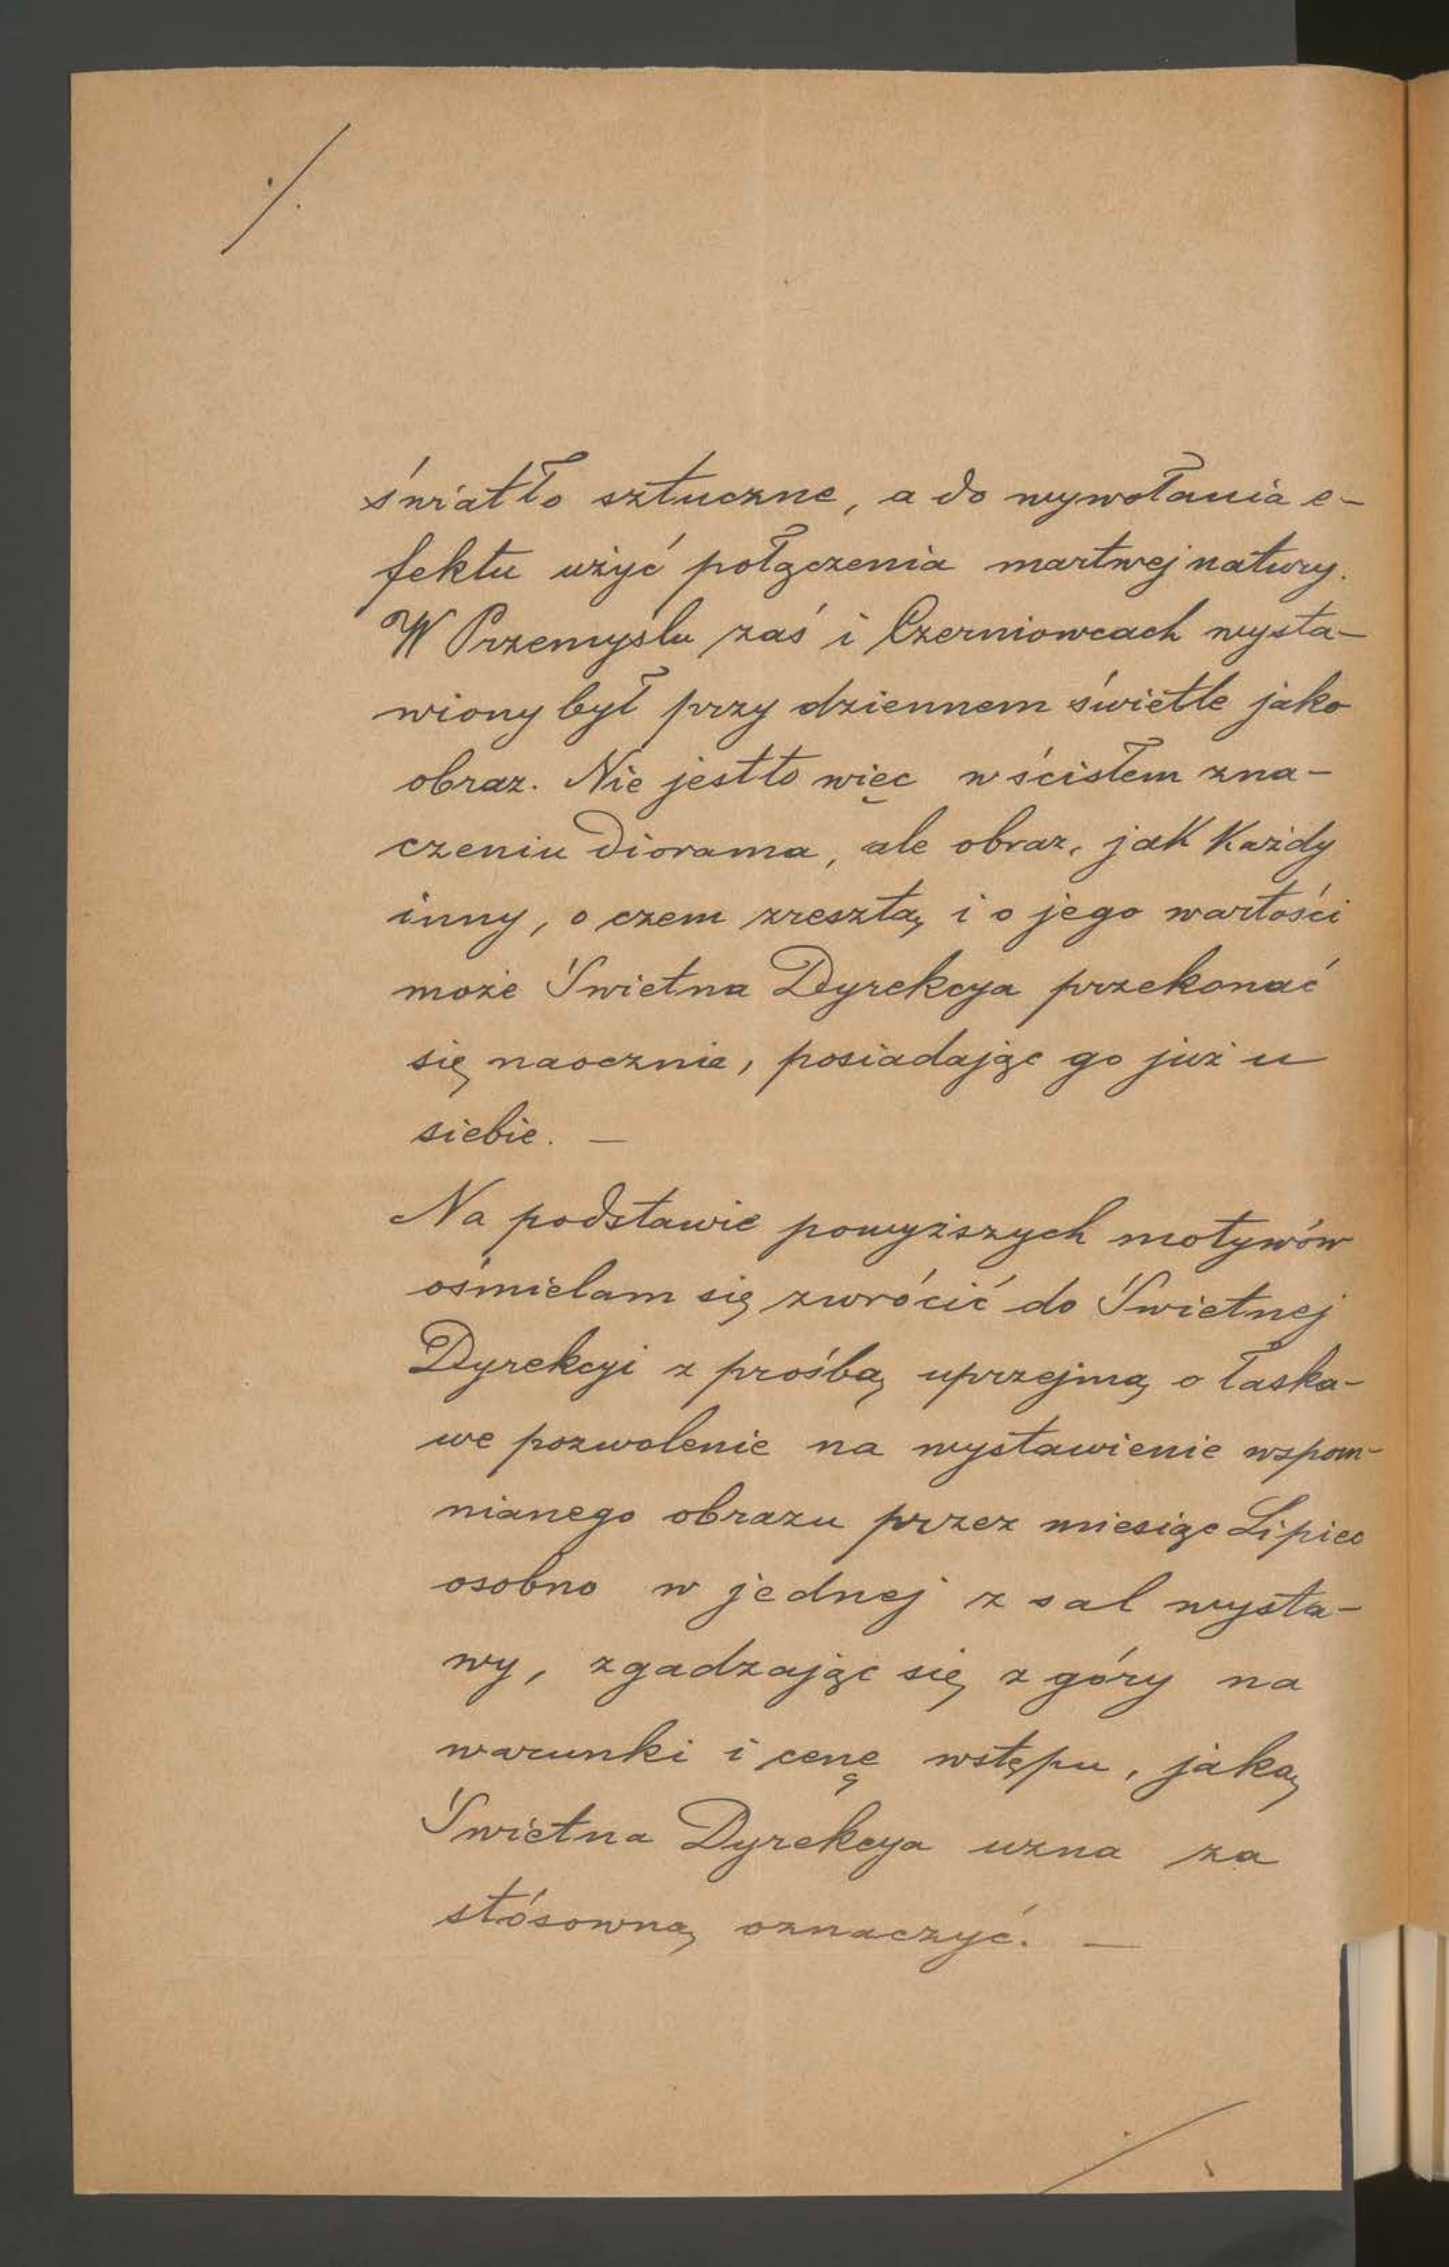 ./.
światło sztuczne, a do wywołania e-
fektu użyć połączenia martwej natury.
W Przemyślu zaś i Czerniowcach wysta-
wiony był przy dziennem świetle jako
obraz. Nie jestto więc w ścisłem zna-
czeniu Diorama, ale obraz, jak Każdy
inny, o czem zresztą i o jego wartości
może Świetna Dyrekcya przekonać
się naocznie, posiadając go już u
siebie. —
Na podstawie powyższych motywów
ośmielam się zwrócić do Świetnej
Dyrekcyi z prośbą uprzejmą o łaska-
we pozwolenie na wystawienie wspom-
nianego obrazu przez miesiąc Lipiec
osobno w jednej z sal wysta-
wy, zgadzając się z góry na
warunki i cenę wstępu, jaką
Świetna Dyrekcya uzna za
stósowną oznaczyć. —
./.